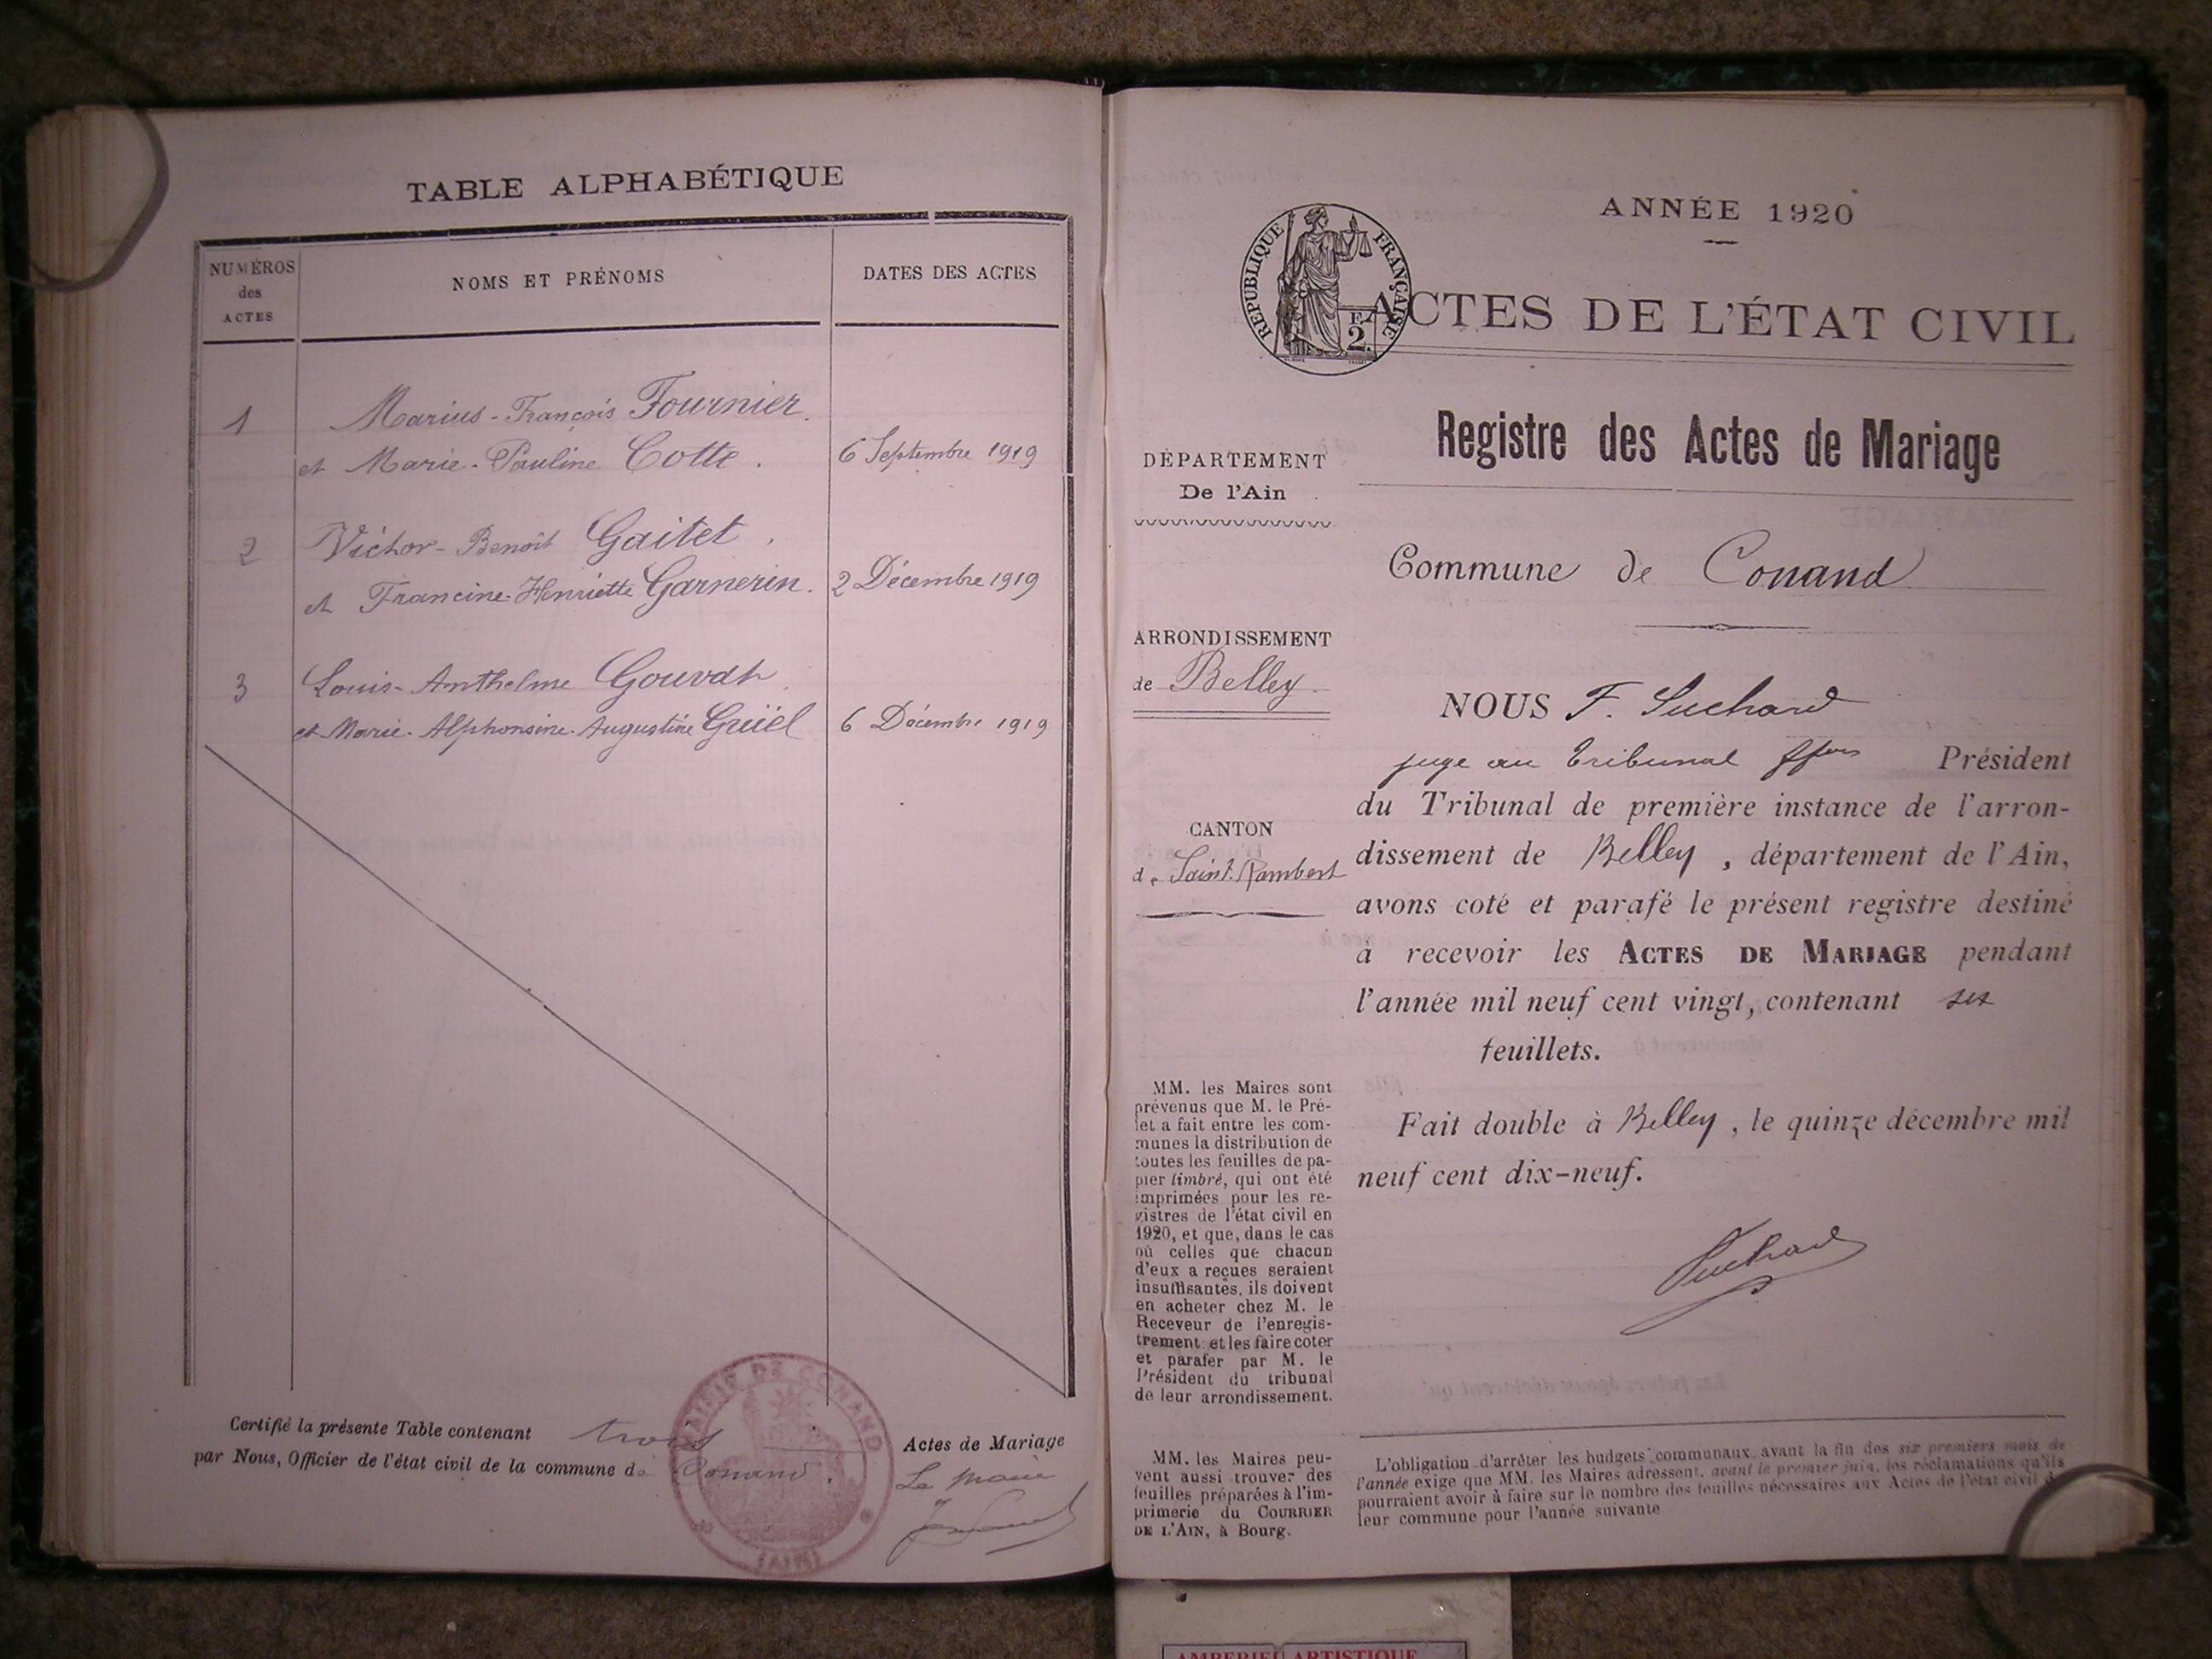 TABLE ALPHABÉTIQUE
NUMÉROS
des
ACTES
NOMS ET PRÉNOMS
DATES DES ACTES
1
Marius-François Fournier.
et Marie-Pauline Cotte.
6 Septembre 1919
2
Victor-Benoît Gaitet.
et Francine-Henriette Garnerin.
2 Décembre 1919
3
Louis-Anthelme
et Marie-Alphonsine-Augustine Guïel
6 Décembre 1919
Certifié la présente Table contenant trois Actes de Mariage
par Nous, Officier de l'état civil de la commune de Conand.
Le maire
MAIRIE DE CONAND
(AIN)
ANNÉE 1920
RÉPUBLIQUE FRANÇAISE
2
ACTES DE L'ÉTAT CIVIL
Registre des Actes de Mariage
DÉPARTEMENT
De l'Ain
Commune de Conand
ARRONDISSEMENT
de Belley
CANTON
de Saint-Rambert
NOUS F. Suchard
juge au tribunal Président
du Tribunal de première instance de l'arron-
dissement de Belley, département de l'Ain,
avons coté et parafé le présent registre destiné
à recevoir les ACTES DE MARIAGE pendant
l'année mil neuf cent vingt, contenant
feuillets.
Fait double à Belley, le quinze décembre mil
neuf cent dix-neuf.
Suchard
MM. les Maires sont
prévenus que M. le Pré-
fet a fait entre les com-
munes la distribution de
toutes les feuilles de pa-
pier timbré, qui ont été
imprimées pour les re-
gistres de l'état civil en
1920, et que, dans le cas
où celles que chacun
d'eux a reçues seraient
insuffisantes, ils doivent
en acheter chez M. le
Receveur de l'enregis-
trement et les faire coter
et parafer par M. le
Président du tribunal
de leur arrondissement.
MM. les Maires peu-
vent aussi trouver des
feuilles préparées à l'im-
primerie du COURRIER
DE L'AIN, à Bourg.
L'obligation d'arrêter les budgets communaux avant la fin des six premiers mois de
l'année exige que MM. les Maires adressent, avant le premier juin, les réclamations qu'ils
pourraient avoir à faire sur le nombre des feuilles nécessaires aux Actes de l'état civil de
leur commune pour l'année suivante
AMBERIEU ARTISTIQUE